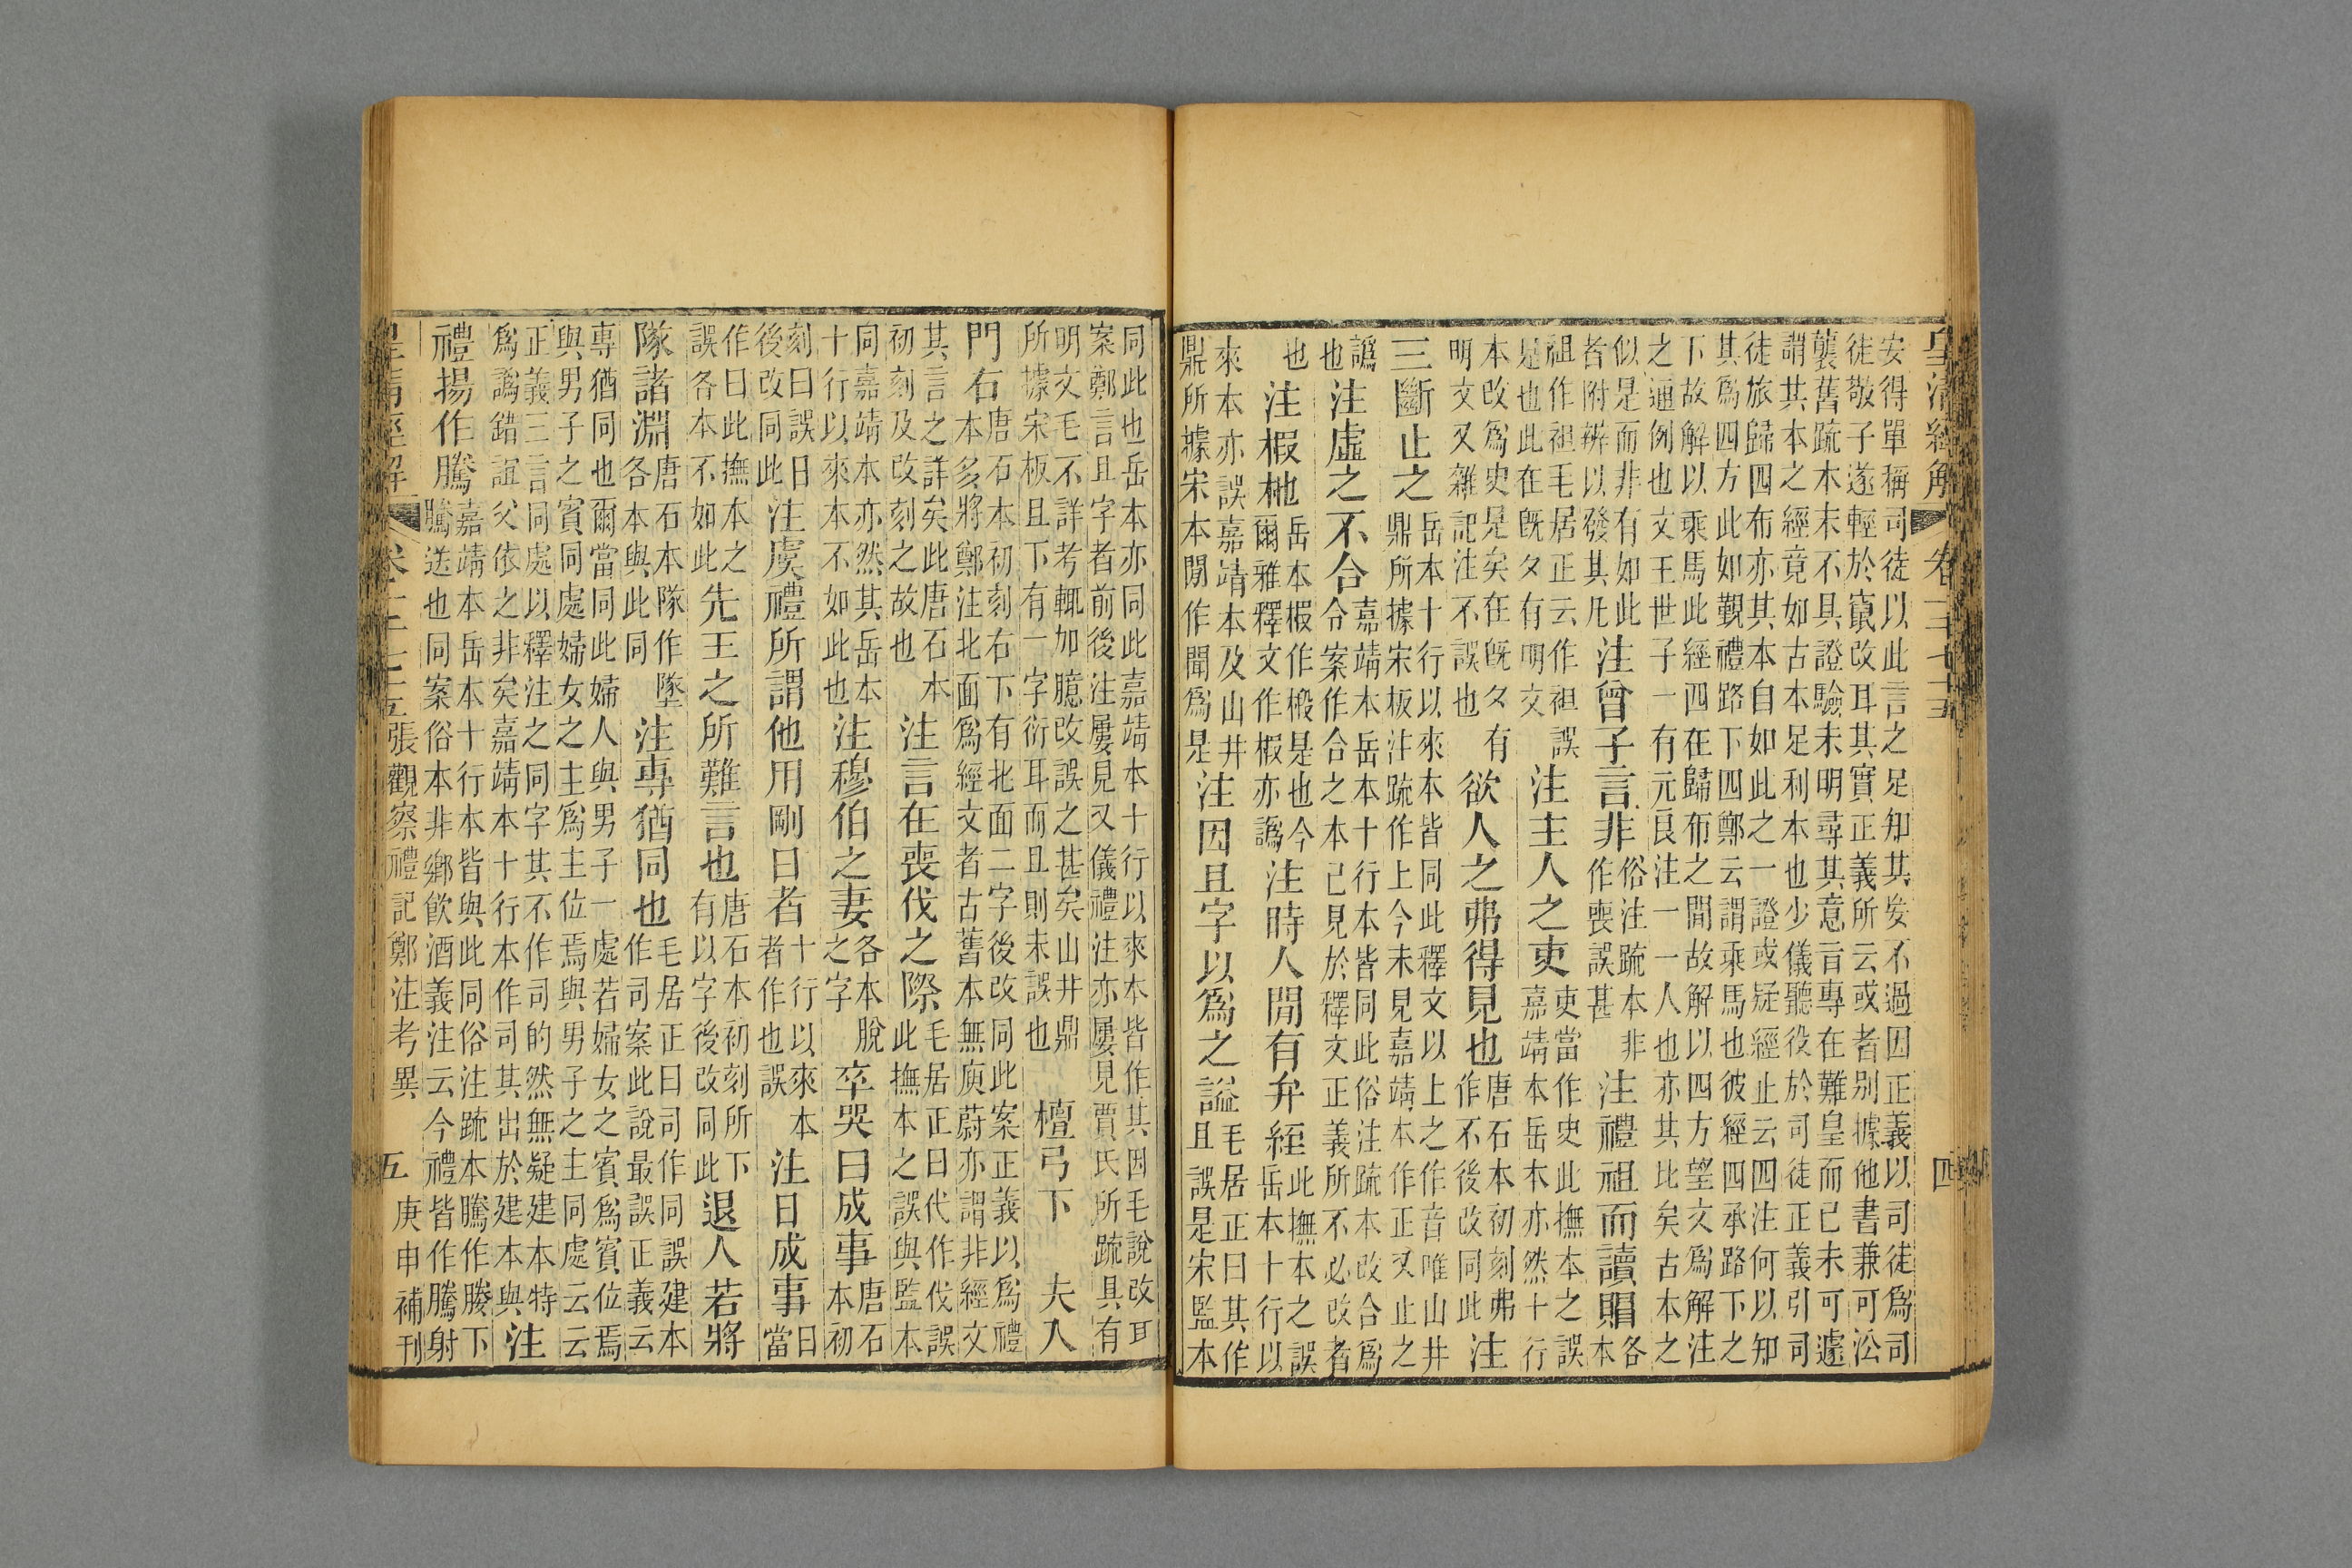 皇清經解 卷一千七十五 四
安得單稱司徒以此言之足知其妄不過因正義以司徒爲司
徒敬子遂輕於竄改耳其實正義所云或者别據他書兼可訟
襲舊䟽本未不具證驗未明尋其意言專在難皇而已未可遽
謂其本之經竟如古本足利本也少儀聽役於司徒正義引司
徒旅歸四布亦其本自如此之一證或疑經止云四注何以知
其爲四方此如覲禮路下四鄭云謂乘馬也彼經四承路下之
下故解以乘馬此經四在歸布之閒故解以四方望文爲解注
之通例也文王世子一有元良注一一人也亦其比矣古本之
似是而非有如此者附辨以發其凡 注曾子言非 俗注䟽本非作喪誤甚 注禮祖而讀賵 各本
祖作祖毛居正云作祖誤是也此在旣夕有明文 注主人之吏 吏當作史此撫本之誤嘉靖本岳本亦然十行
本改爲史是矣在旣夕有明文又雜記注不誤也 欲人之弗得見也 唐石本初刻弗作不後改同此 注
三斷止之 岳本十行以來本皆同此釋文以上之作音唯山井鼎所據宋板注䟽作上今未見嘉靖本作正又止之
譌也 注虛之不合 嘉靖本岳本十行本皆同此俗注䟽本改合爲令案作合之本已見於釋文正義所不必改者
也 注椵杝 岳本椵作椴是也今爾雅釋文作椵亦譌 注時人閒有弁絰 此撫本之誤岳本十行以
來本亦誤嘉靖本及山井鼎所據宋本閒作聞爲是 注因且字以爲之謚 毛居正曰其作且誤是宋監本
同此也岳本亦同此嘉靖本十行以來本皆作其因毛說改耳
案鄭言且字者前後注屢見又儀禮注亦屢見賈氏所䟽具有
明文毛不詳考輒加臆改誤之甚矣山井鼎所據宋板且下有一字衍耳而且則未誤也 檀弓下 夫人
門右 唐石本初刻右下有北面二字後改同此案正義以爲禮本多將鄭注北面爲經文者古舊本無庾蔚亦謂非經文
其言之詳矣此唐石本初刻及改刻之故也 注言在喪伐之際 毛居正曰代作伐誤此撫本之誤與監本
同嘉靖本亦然其岳本十行以來本不如此也 注穆伯之妻 各本脫之字 卒哭曰成事 唐石本初
刻曰誤日後改同此 注虞禮所謂他用剛日者 十行以來本者作也誤 注日成事 日當
作曰此撫本之誤各本不如此 先王之所難言也 唐石本初刻所下有以字後改同此 退人若將
隊諸淵 唐石本隊作墜各本與此同 注專猶同也 毛居正曰司作同誤建本作司案此說最誤正義云
專猶同也爾當同此婦人與男子一處若婦女之賓爲賓位焉
與男子之賓同處婦女之主爲主位焉與男子之主同處云云
正義三言同處以釋注之同字其不作司的然無疑建本特爲譌錯誼父依之非矣嘉靖本十行本作司其出於建本與 注
禮揚作騰 嘉靖本岳本十行本皆與此同俗注䟽本騰作媵下騰送也同案俗本非鄉飲酒義注云今禮皆作騰射
皇清經解 卷一千七十五 張觀察禮記鄭注考異 五 庚申補刊